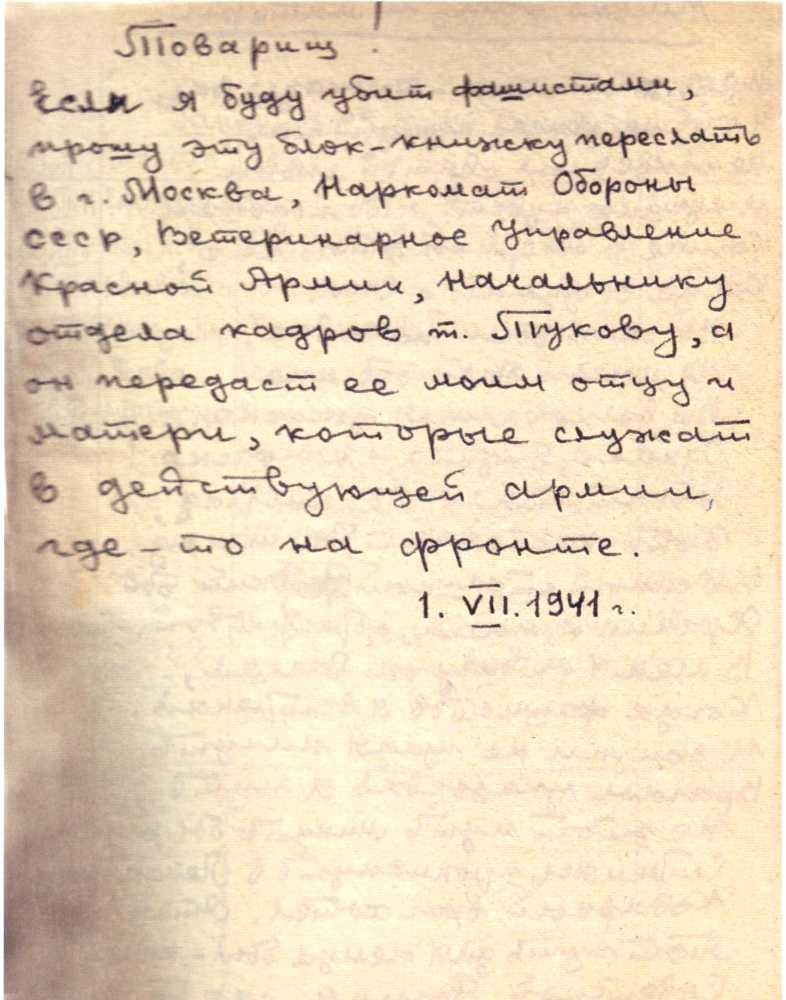 Товарищ!
Если я буду убит фашистами,
прошу эту блок-книжку переслать
в г. Москва, Наркомат Обороны
СССР, Ветеринарное Управление
Красной Армии, Начальнику
отдела кадров т. Тукову, а
он передаст ее моим отцу и
матери, которые служат
в действующей армии,
где-то на фронте.
1. VII. 1941 г.